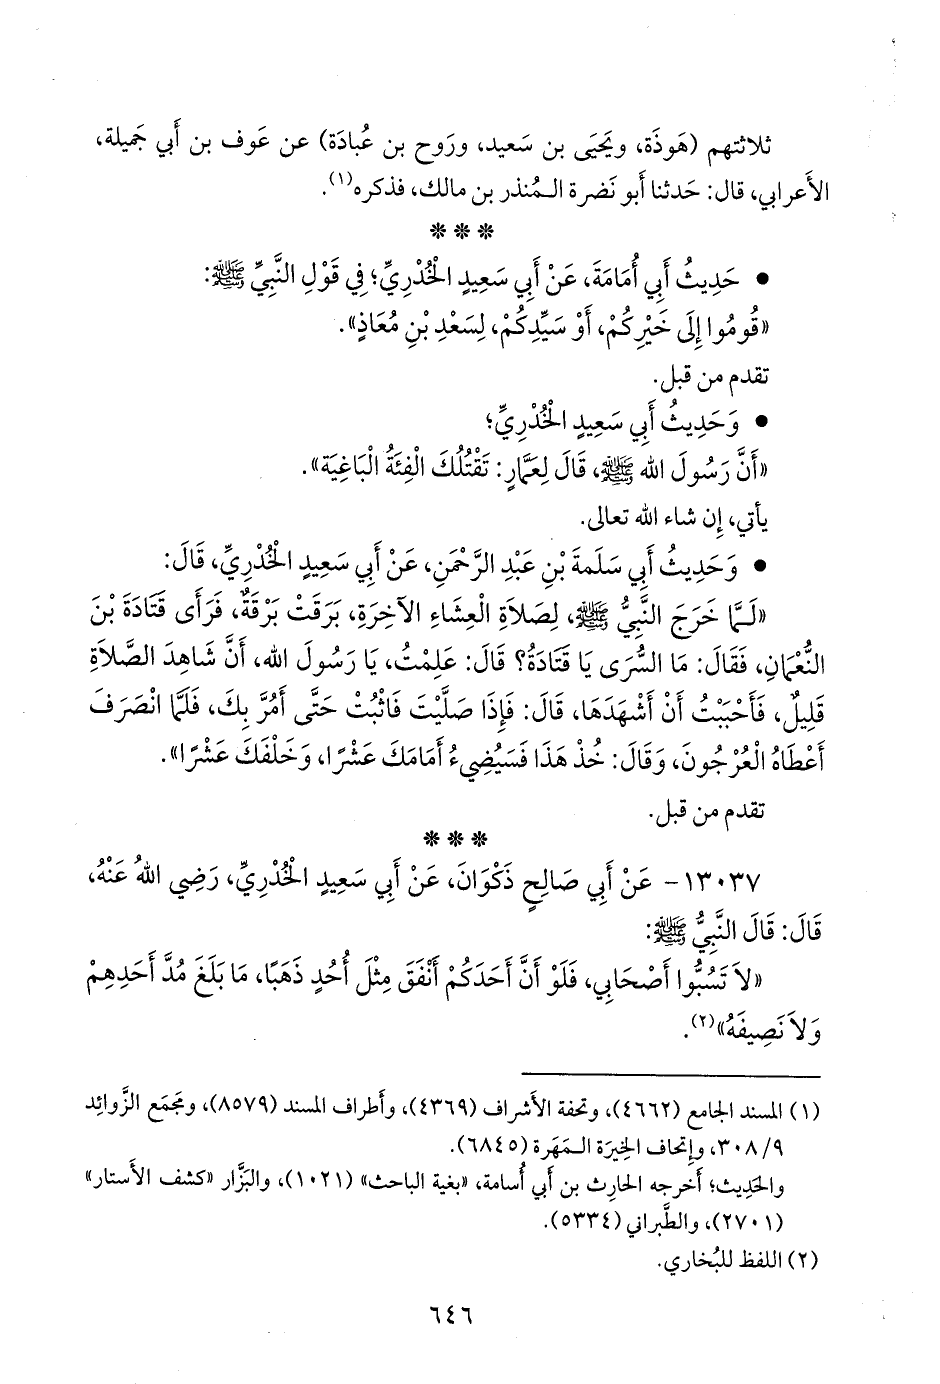 ثلاثتهم (هَوذَة، ويَحيَى بن سَعيد، ورَوح بن عُبادَة) عن عَوف بن أَبي جَميلة،
الأَعرابي، قال: حَدثنا أَبو نَضرة الـمُنذر بن مالك، فذكره(١).
* * *
• حَدِيثُ أَبِي أُمَامَةَ، عَنْ أَبِي سَعِيدٍ الْخُدْرِيِّ؛ فِي قَوْلِ النَّبِيِّ ﷺ:
«قُومُوا إِلَى خَيْرِكُمْ، أَوْ سَيِّدِكُمْ، لِسَعْدِ بْنِ مُعَاذٍ».
تقدم من قبل.
• وَحَدِيثُ أَبِي سَعِيدٍ الْخُدْرِيِّ؛
«أَنَّ رَسُولَ الله ﷺ، قَالَ لِعَمَّارٍ: تَقْتُلُكَ الْفِئَةُ الْبَاغِيَةُ».
يأتي، إِن شاء الله تعالى.
• وَحَدِيثُ أَبِي سَلَمَةَ بْنِ عَبْدِ الرَّحْمَنِ، عَنْ أَبِي سَعِيدٍ الْخُدْرِيِّ، قَالَ:
«لَـمَّا خَرَجَ النَّبِيُّ ﷺ، لِصَلَاةِ الْعِشَاءِ الآخِرَةِ، بَرَقَتْ بَرْقَةٌ، فَرَأَى قَتَادَةَ بْنَ
النُّعْمَانِ، فَقَالَ: مَا السُّرَى يَا قَتَادَةُ؟ قَالَ: عَلِمْتُ، يَا رَسُولَ الله، أَنَّ شَاهِدَ الصَّلَاةِ
قَلِيلٌ، فَأَحْبَبْتُ أَنْ أَشْهَدَهَا، قَالَ: فَإِذَا صَلَّيْتَ فَاثْبُتْ حَتَّى أَمُرَّ بِكَ، فَلَمَّا انْصَرَفَ
أَعْطَاهُ الْعُرْجُونَ، وَقَالَ: خُذْ هَذَا فَسَيُضِيءُ أَمَامَكَ عَشْرًا، وَخَلْفَكَ عَشْرًا».
تقدم من قبل.
* * *
١٣٠٣٧- عَنْ أَبِي صَالِحٍ ذَكْوَانَ، عَنْ أَبِي سَعِيدٍ الْخُدْرِيِّ، رَضِي اللهُ عَنْهُ،
قَالَ: قَالَ النَّبِيُّ ﷺ:
«لَا تَسُبُّوا أَصْحَابِي، فَلَوْ أَنَّ أَحَدَكُمْ أَنْفَقَ مِثْلَ أُحُدٍ ذَهَبًا، مَا بَلَغَ مُدَّ أَحَدِهِمْ
وَلَا نَصِيفَهُ»(٢).
(١) المسند الجامع (٤٦٦٢)، وتحفة الأشراف (٤٣٦٩)، وأطراف المسند (٨٥٧٩)، ومَجمَع الزَّوائد
٣٠٨/٩، وإِتحاف الخِيرَة الـمَهَرة (٦٨٤٥).
والحَدِيث؛ أخرجه الحارث بن أبي أُسامة، «بغية الباحث» (١٠٢١)، والبَزَّار «كشف الأستار»
(٢٧٠١)، والطَّبراني (٥٣٣٤).
(٢) اللفظ للبُخاري.
٦٤٦